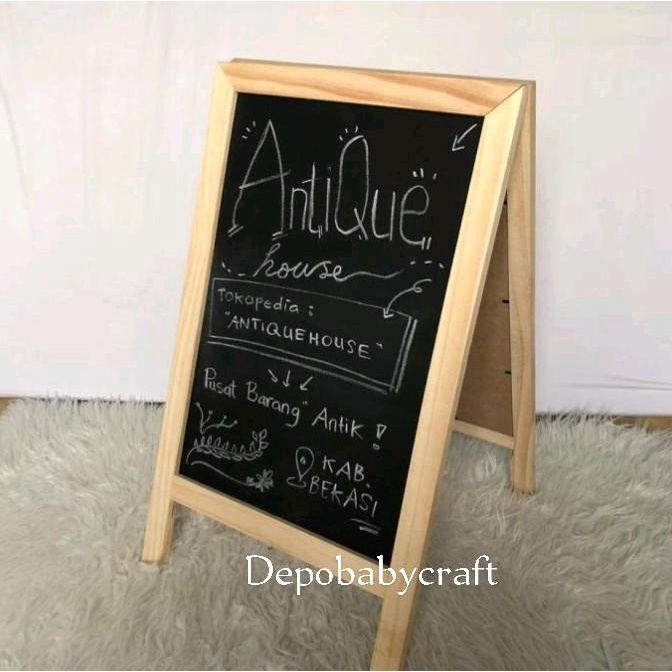 AntiQue
house
Tokopedia :
"ANTIQUEHOUSE"
Pusat Barang" Antik !
KAB.
BEKASI
Depobabycraft